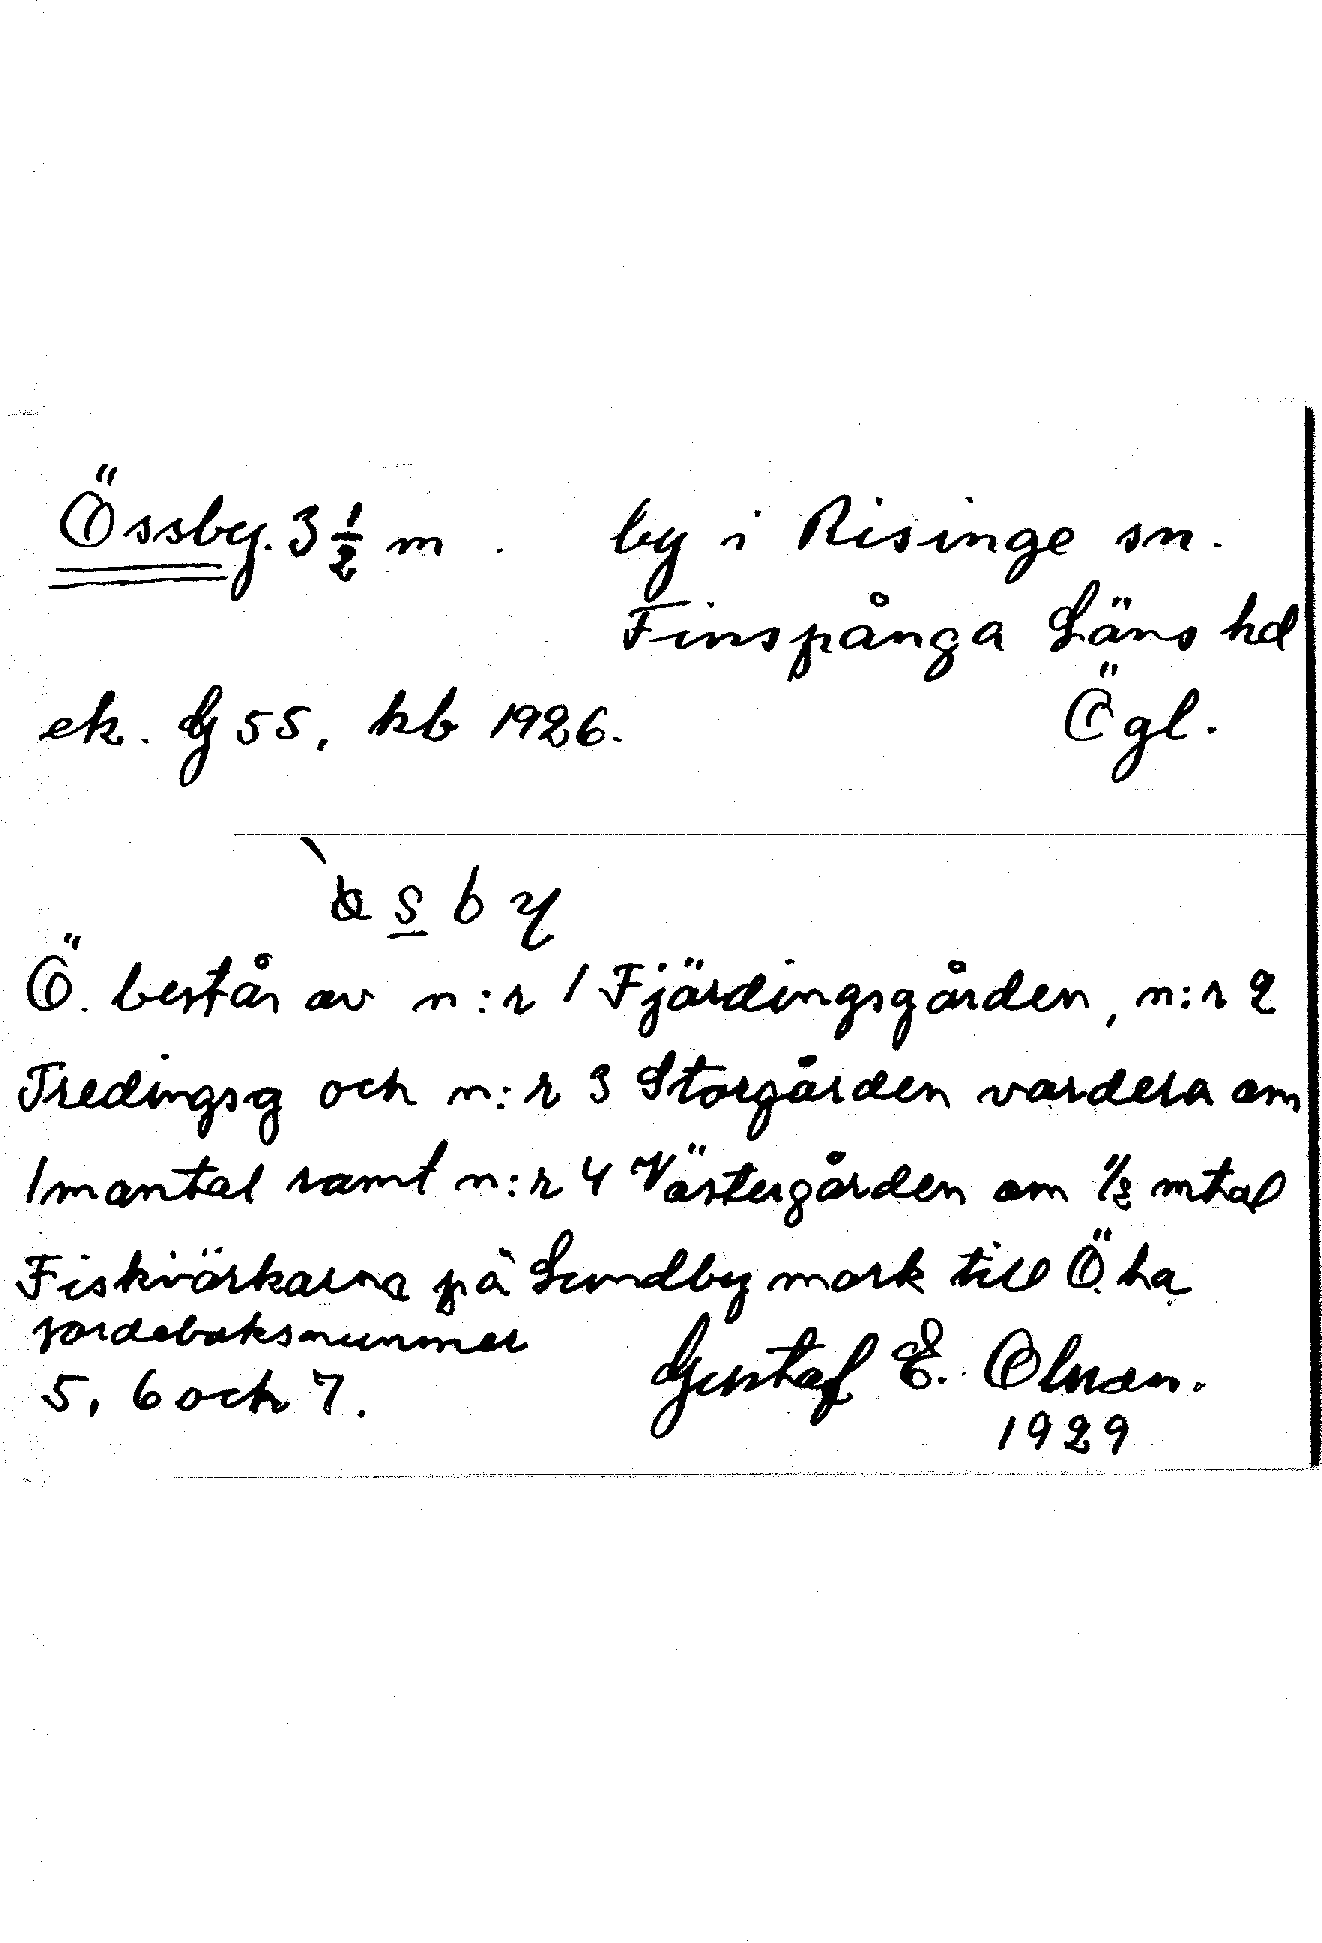 Össby. 3 1/2 m . by i Risinge sn.
Finspånga Läns hd
ek. G 55, kb 1926. Ögl.
s b y
Ö. består av n:r 1 Fjärdingsgården, n:r 2
Tredingsg och n:r 3 Storgården vardera om
1 mantal samt n:r 4 Västergården om 1/2 mtal
Fiskvärkarna på Lundby mark till Ö. ha
jordeboksnummer
5, 6 och 7. Gustaf E. Olsson.
1929